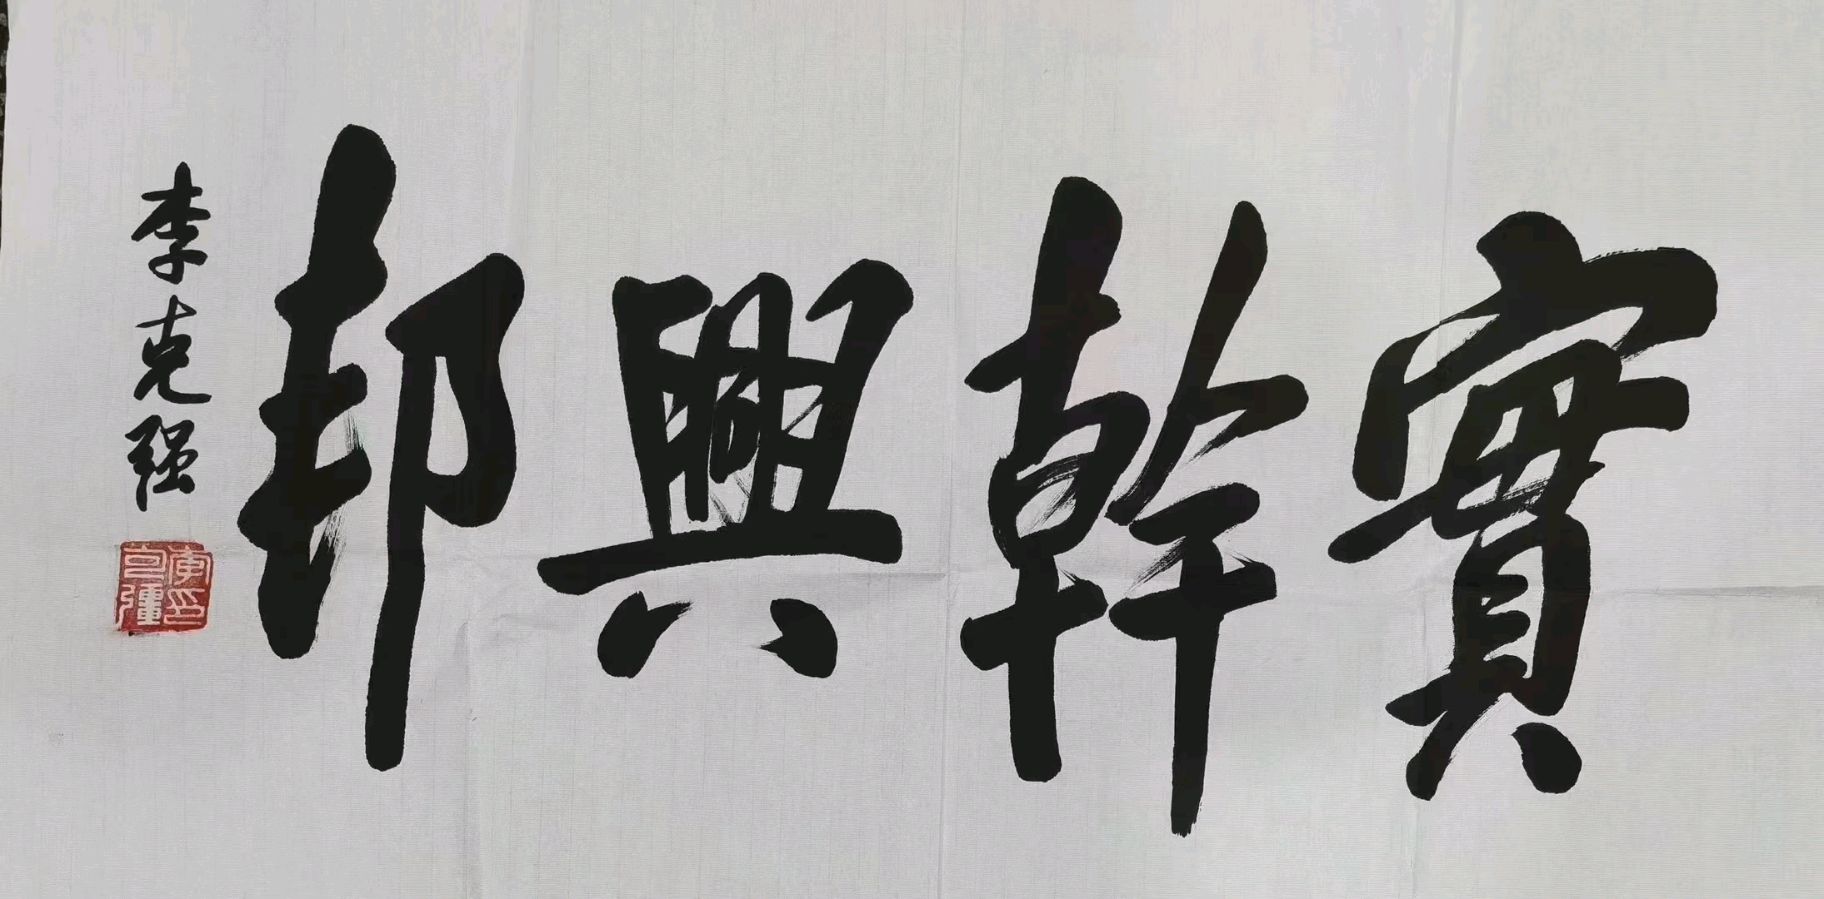 實幹興邦
李克强